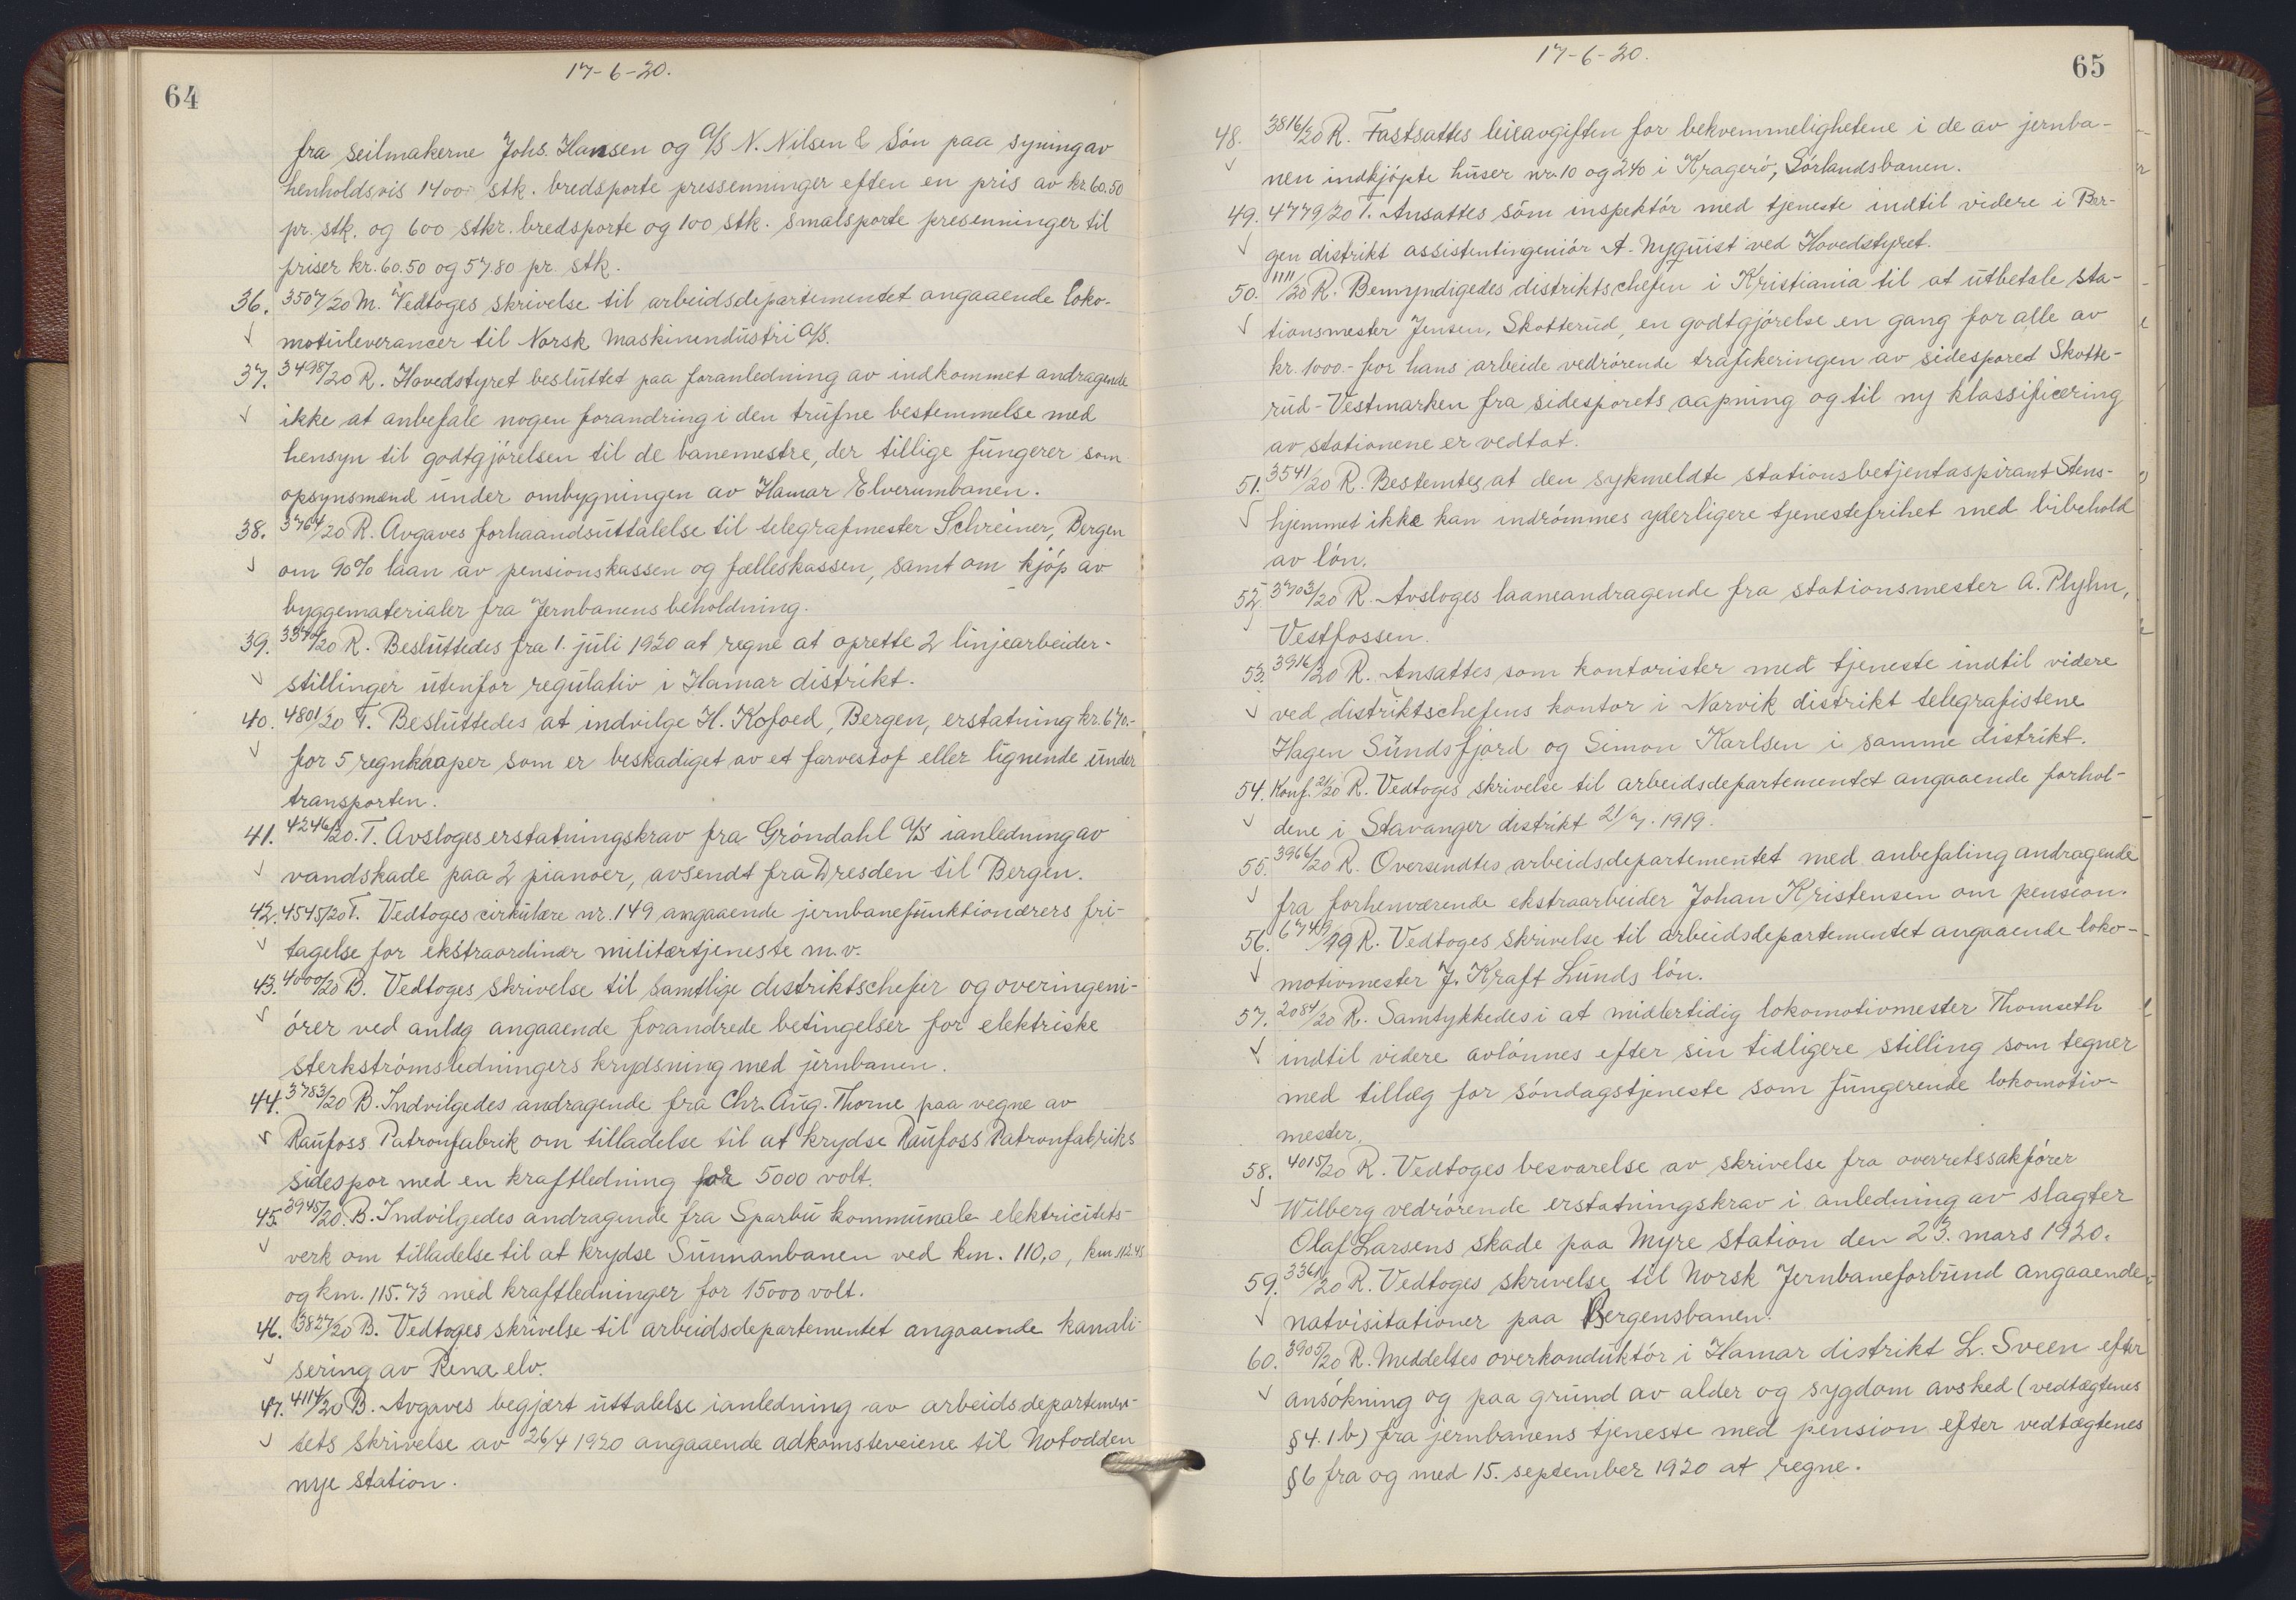 64
17-6-20.
fra seilmakerne Johs. Hansen og A/S N. Nilsen & Søn paa syning av
henholdsvis 1400 stk. bredsporte pressenninger eften en pris av kr. 60.50
pr. stk. og 600 stkr. bredsporte og 100 stk. smalsporte presenninger til
priser kr. 60.50 og 57.80 pr. stk.
36. 3507/20 M. Vedtoges skrivelse til arbeidsdepartementet angaaende loko-
motivleverancer til Norsk Maskinindustri A/S.
37. 3498/20 R. Hovedstyret besluttet paa foranledning av indkommet andragende
ikke at anbefale nogen forandring i den trufne bestemmelse med
hensyn til godtgjørelsen til de banemestre, der tillige fungerer som
opsynsmænd under ombygningen av Hamar Elverumbanen.
38. 3764/20 R. Avgaves forhaandsuttalelse til telegrafmester Schreiner, Bergen
om 90% laan av pensionskassen og fælleskassen, samt om kjøp av
byggematerialer fra Jernbanens beholdning.
39. 3370/20 R. Besluttedes fra 1. juli 1920 at regne at oprette 2 linjearbeider-
stillinger utenfor regulativ i Hamar distrikt.
40. 4801/20 T. Besluttedes at indvilge H. Kofoed, Bergen, erstatning kr. 670.-
for 5 regnkaaper som er beskadiget av et farvestof eller lignende under
transporten.
41. 4246/20. T. Avsloges erstatningskrav fra Grøndahl A/S i anledning av
vandskade paa 2 pianoer, avsendt fra Dresden til Bergen.
42. 4545/20 T. Vedtoges cirkulære nr. 149 angaaende jernbanefunktionærers fri-
tagelse for ekstraordinær militærtjeneste m.v.
43. 4000/20 B. Vedtoges skrivelse til samtlige distriktschefer og overingeni-
ører ved anlæg angaaende forandrede betingelser for elektriske
sterkstrømsledningers krydsning med jernbanen.
44. 3783/20 B. Indvilgedes andragende fra Chr. Aug. Thorne paa vegne av
Raufoss Patronfabrik om tilladelse til at krydse Raufoss Patronfabriks
sidespor med en kraftledning for 5000 volt.
45. 3945/20. B. Indvilgedes andragende fra Sparbu kommunale elektricitets-
verk om tilladelse til at krydse Sunnanbanen ved km. 110,0, km. 112.45
og km. 115.73 med kraftledninger for 15000 volt.
46. 3827/20 B. Vedtoges skrivelse til arbeidsdepartementet angaaende kanali-
sering av Rena elv.
47. 4114/20 B. Avgaves begjært uttalelse i anledning av arbeidsdepartemen-
tets skrivelse av 26/4 1920 angaaende adkomsteveiene til Notodden
nye station.
65
17-6-20.
48. 3816/20 R. Fastsattes leieavgiften for bekvemmelighetene i de av jernba-
nen indkjøpte huser nr. 10 og 240 i Kragerø, Sørlandsbanen.
49. 4779/20 T. Ansattes som inspektør med tjeneste indtil videre i Ber-
gen distrikt assistentingeniør A. Nyquist ved Hovedstyret.
50. 1111/20 R. Bemyndigedes distriktschefen i Kristiania til at utbetale sta-
tionsmester Jensen, Skotterud, en godtgjørelse en gang for alle av
kr. 1000.- for hans arbeide vedrørende trafikeringen av sidesporet Skotte-
rud-Vestmarken fra sidesporets aapning og til ny klassificering
av stationene er vedtat.
51. 3541/20 R. Bestemtes at den sykmeldte stationsbetjentaspirant Stens-
hjemmet ikke kan indrømmes yderligere tjenestefrihet med bibehold
av løn.
52. 3703/20 R. Avsloges laaneandragende fra stationsmester A. Plyhn,
Vestfossen.
53. 3916/20 R. Ansattes som kontorister med tjeneste indtil videre
ved distriktschefens kontor i Narvik distrikt telegrafistene
Hagen Sundsfjord og Simon Karlsen i samme distrikt.
54. Konf. 21/20 R. Vedtoges skrivelse til arbeidsdepartementet angaaende forhol-
dene i Stavanger distrikt 21/7. 1919.
55. 3966/20 R. Oversendtes arbeidsdepartementet med anbefaling andragende
fra forhenværende ekstraarbeider Johan Kristensen om pension.
56. 6749/19 R. Vedtoges skrivelse til arbeidsdepartementet angaaende loko-
motivmester J. Kraft Lunds løn.
57. 2084/20 R. Samtykkedes i at midlertidig lokomotivmester Thomseth
indtil videre avlønnes efter sin tidligere stilling som tegner
med tillæg for søndagstjeneste som fungerende lokomotiv-
mester.
58. 4015/20 R. Vedtoges besvarelse av skrivelse fra overretssakfører
Wilberg vedrørende erstatningskrav i anledning av slagter
Olaf Larsens skade paa Myre station den 23. mars 1920.
59. 3361/20 R. Vedtoges skrivelse til Norsk Jernbaneforbund angaaende
natvisitationer paa Bergensbanen.
60. 3905/20 R. Meddeltes overkonduktør i Hamar distrikt L. Sveen efter
ansøkning og paa grund av alder og sygdom avsked (vedtægtenes
§ 4. 1 b) fra jernbanens tjeneste med pension efter vedtægtenes
§ 6 fra og med 15. september 1920 at regne.